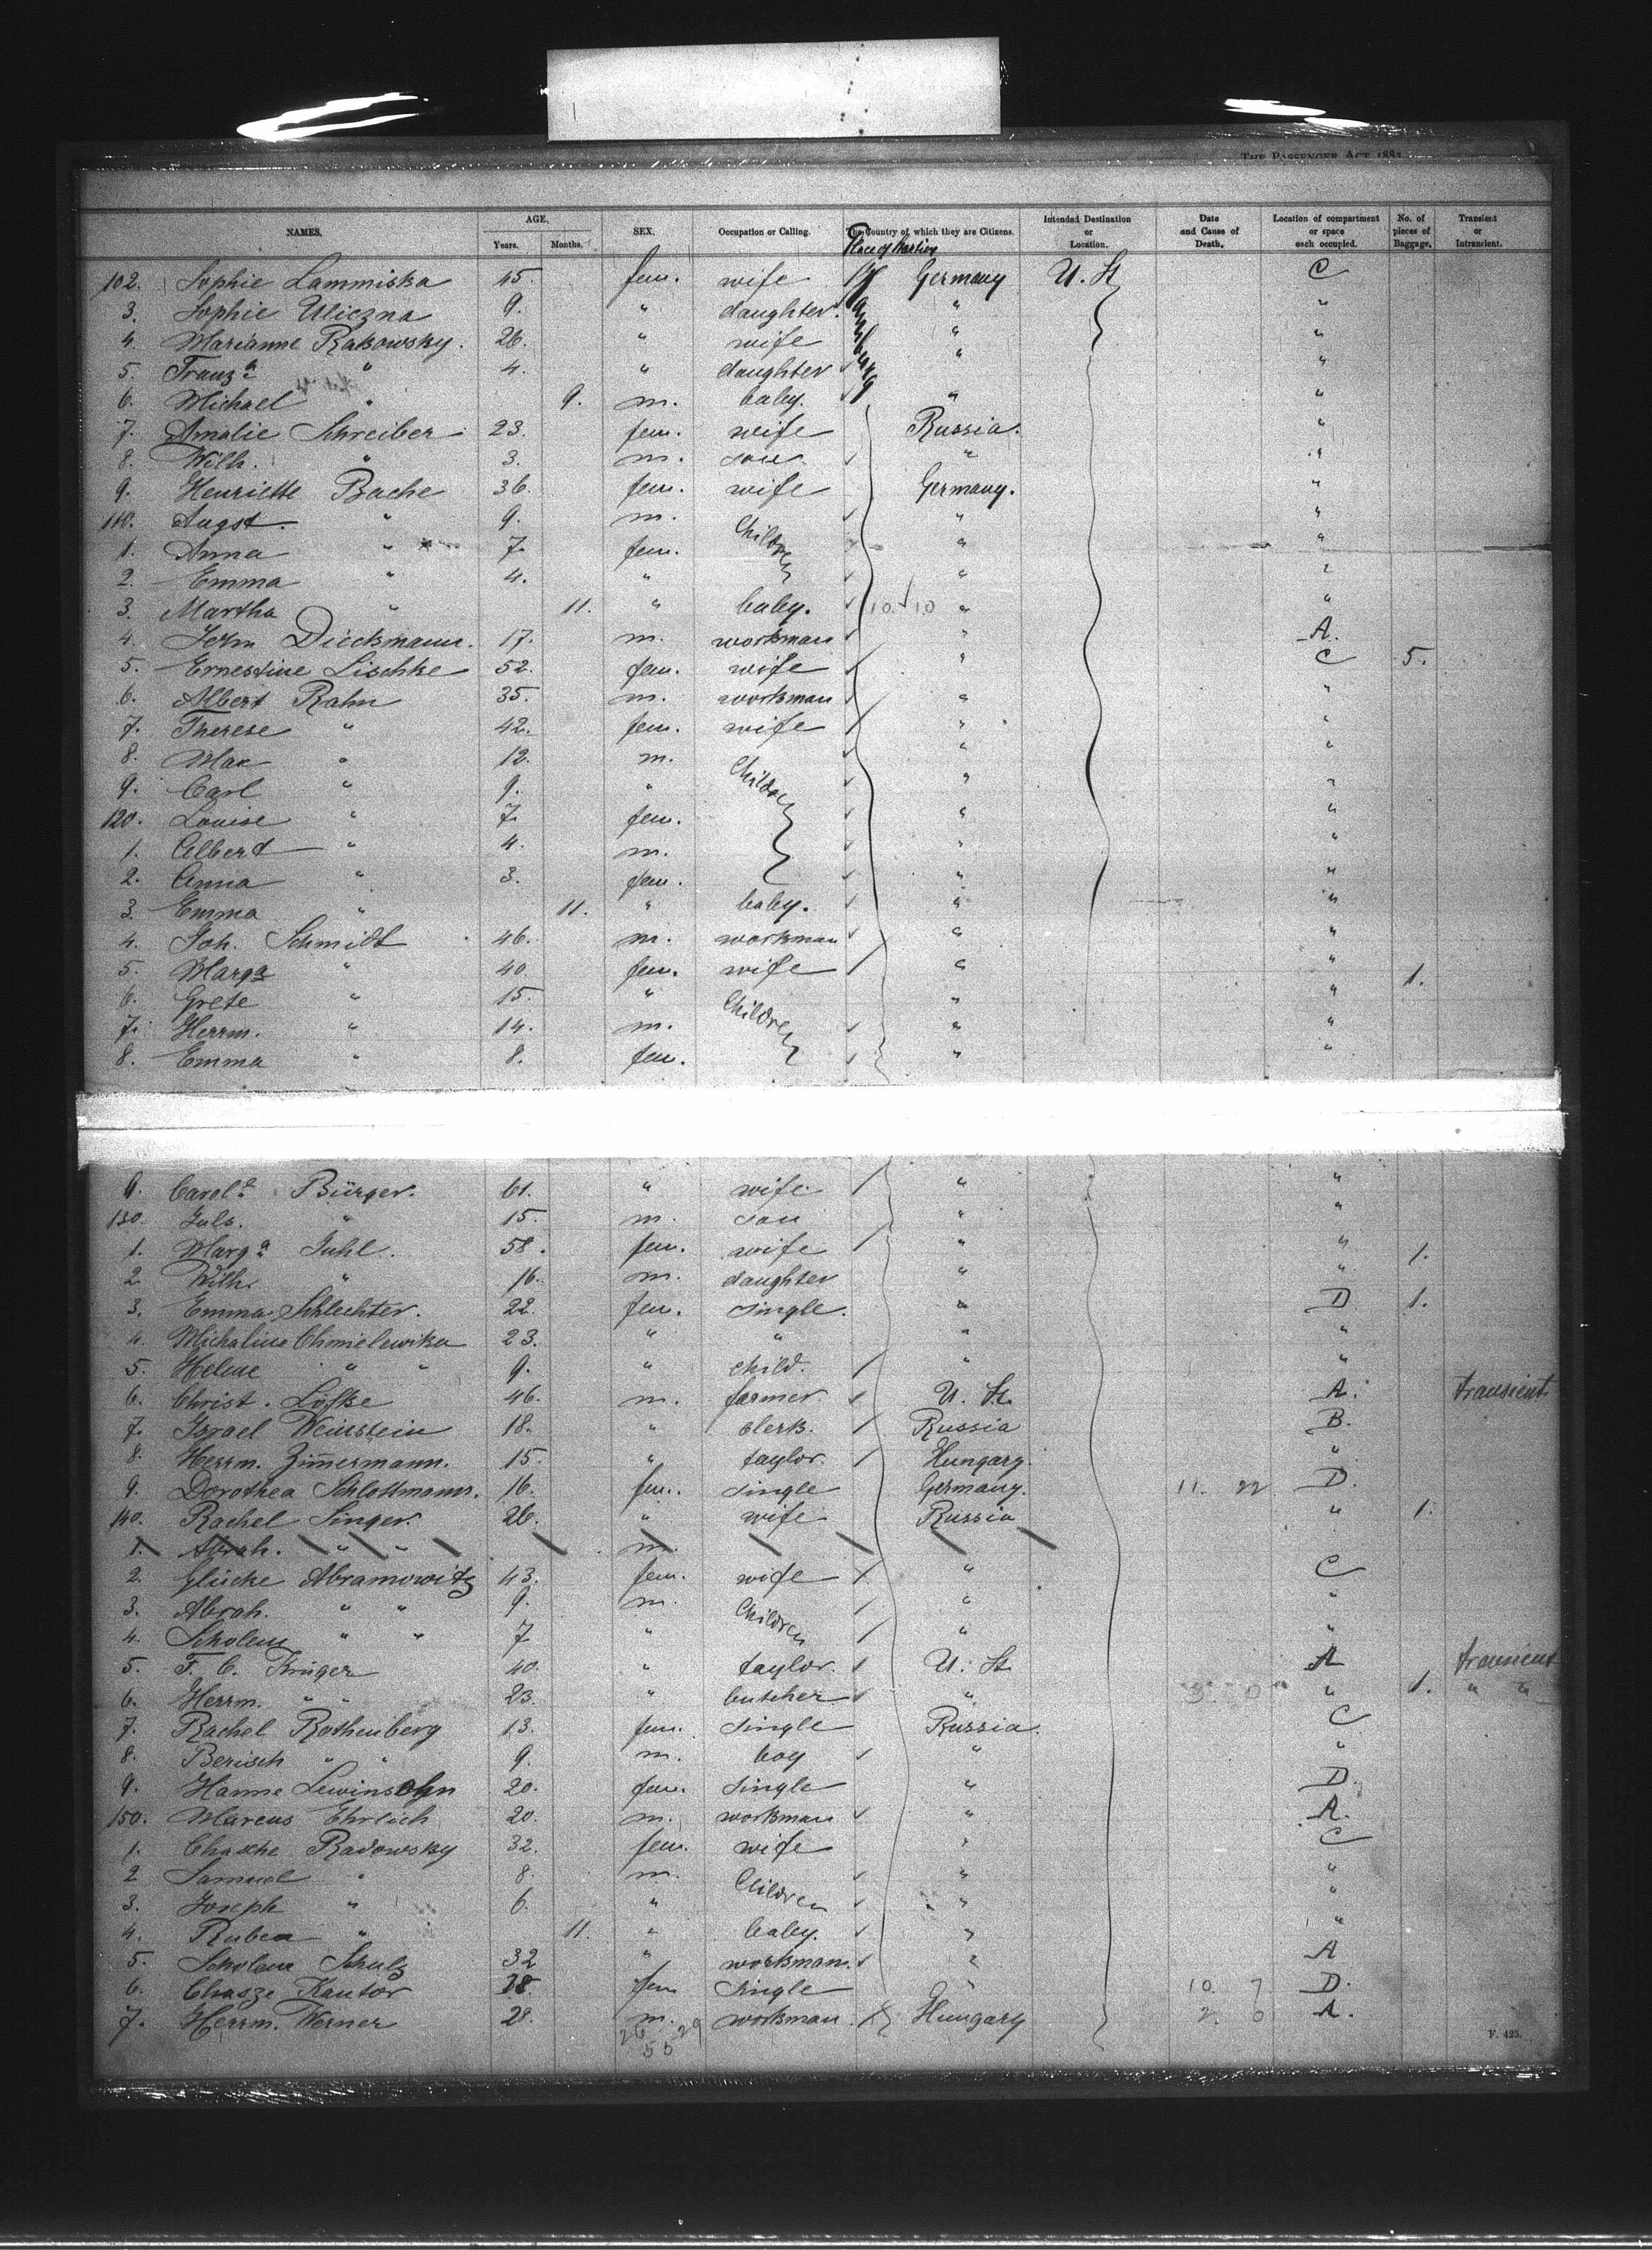 THE PASSENGER ACT 1882
NAMES. AGE. Years. Months. SEX. Occupation or Calling. The Country of which they are Citizens. Intended Destination or Location. Date and Cause of Death. Location of compartment or space each occupied. No. of pieces of Baggage. Transient or Intransient.
Place of Starting
Hamburg
102. Sophie Lammiska 45. fem. wife Germany U. St C
3. Sophie Uliczna 9. " daughter. " "
4. Marianne Rakowsky. 26. " wife " "
5. Franz.a " 4. " daughter " "
6. Michael " 9. m. baby. " "
7. Amalie Schreiber 23. fem. wife Russia. "
8. Wilh. " 3. m. son. " "
9. Henriette Bache 36. fem. wife Germany. "
110. Augst. " 9. m. Children " "
1. Anna " 7. fem. " "
2. Emma " 4. " " "
3. Martha " 11. " baby. 10. 10 " "
4. Dieckmann. 17. m. workman " A.
5. Ernestine Lischke 52. fem. wife " C 5.
6. Albert Rahn 35. m. workman " "
7. Therese " 42. fem. wife " "
8. Max " 12. m. Children " "
9. Carl " 9. " " "
120. Louise " 7. fem. " "
1. Albert " 4. m. " "
2. Anna " 3. fem. " "
3. Emma " 11. " baby. " "
4. Joh. Schmidt 46. m. workman " "
5. Marga " 40. fem. wife " " 1.
6. Grete " 15. " Children " "
7. Herrm. " 14. m. " "
8. Emma " 8. fem. " "
9. Carol.e Bürger. 61. " wife. " "
130. Juls. " 15. m. son " "
1. Marg.a Juhl. 58. fem. wife " " 1.
2. Wilh. " 16. m. daughter " "
3. Emma Schlechter. 22. fem. single. " D 1.
4. Michaline Chmielewska 23. " " " "
5. Helene " " 9. " child. " "
6. Christ. Löfke 46. m. farmer. U. St. A. transient
7. Israel Weinstein 18. " clerk. Russia B.
8. Herrm. Zimmermann. 15. " taylor. Hungary. "
9. Dorothea Schlottmann. 16. fem. single Germany. 11. 22 D.
140. Rachel Singer. 26. " wife Russia " 1.
1. Abrah. " " m.
2. Glücke Abramowitz 43. fem. wife " C
3. Abrah. " " 9. m. Children " "
4. Scholem " " 7. " " "
5. F. C. Krüger 40. " taylor. U. St A transient
6. Herrm. " " 23. " butcher " 3. 0 " 1. " "
7. Rachel Rothenberg 13. fem. single Russia. C
8. Berisch " " 9. m. boy " "
9. Hanne Lewinsohn 20. fem. single " D.
150. Marcus Ehrlich 20. m. workman " A.
1. Chasche Radowsky 32. fem. wife " C
2 Samuel " 8. m. Children " "
3. Joseph " 6. " " "
4. Ruben " 11. " baby. " "
5. Scholem Schulz 32 " workman. " A
6. Chasze Kantor 18. fem single " 10. 7 D.
7. Herrm. Werner 28. m. workman. Hungary 2. 0 A.
26 29
55
F. 425.